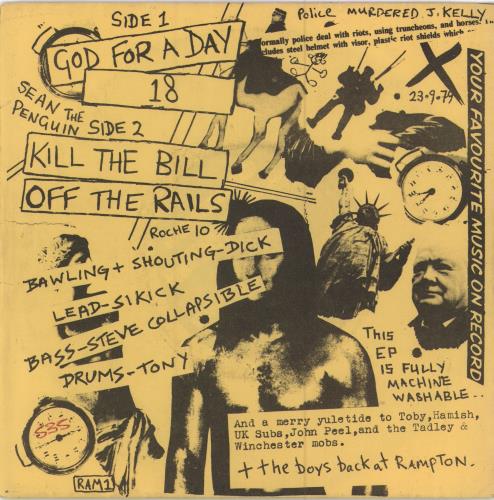 SIDE 1
GOD FOR A DAY
18
SEAN THE
PENGUIN SIDE 2
KILL THE BILL
OFF THE RAILS
ROCHE 10
BAWLING + SHOUTING-DICK
LEAD-SIKICK
BASS-STEVE COLLAPSIBLE
DRUMS-TONY
POLICE MURDERED J. KELLY
ormally police deal with riots, using truncheons, and horses.
cludes steel helmet with visor, plastic riot shields which
X
23-9-79
YOUR FAVOURITE MUSIC ON RECORD
THIS
EP
IS FULLY
MACHINE
WASHABLE..
And a merry yuletide to Toby,Hamish,
UK Subs,John Peel,and the Tadley &
Winchester mobs.
+ the boys back at RAMPTON.
RAM 1